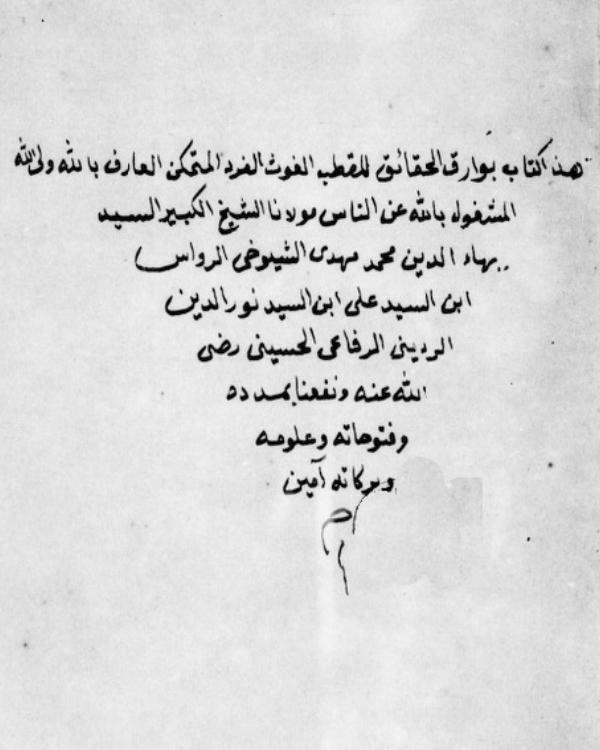 هذا كتاب بوارق الحقائق للقطب الغوث الفرد المتمكن العارف بالله ولى الله
المشغول بالله عن الناس مولانا الشيخ الكبير السيد
بهاء الدين محمد مهدى الشيوخى الرواس
ابن السيد على ابن السيد نور الدين
الرديني الرفاعى الحسينى رضى
الله عنه ونفعنا بمدده
وفتوحاته وعلومه
وبركاته آمين